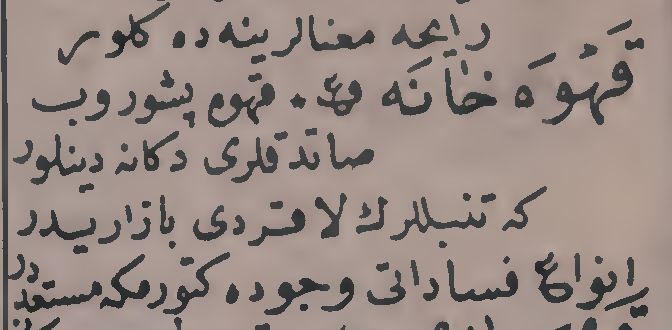 رایحه معنالرینه ده کلور
قَهْوَه خَانَه فع. قهوه پشوروب
صاتدقلری دکانه دینلور
که تنبللرك لاقردی بازاریدر
انواع فساداتی وجوده کتورمکه مستعددر